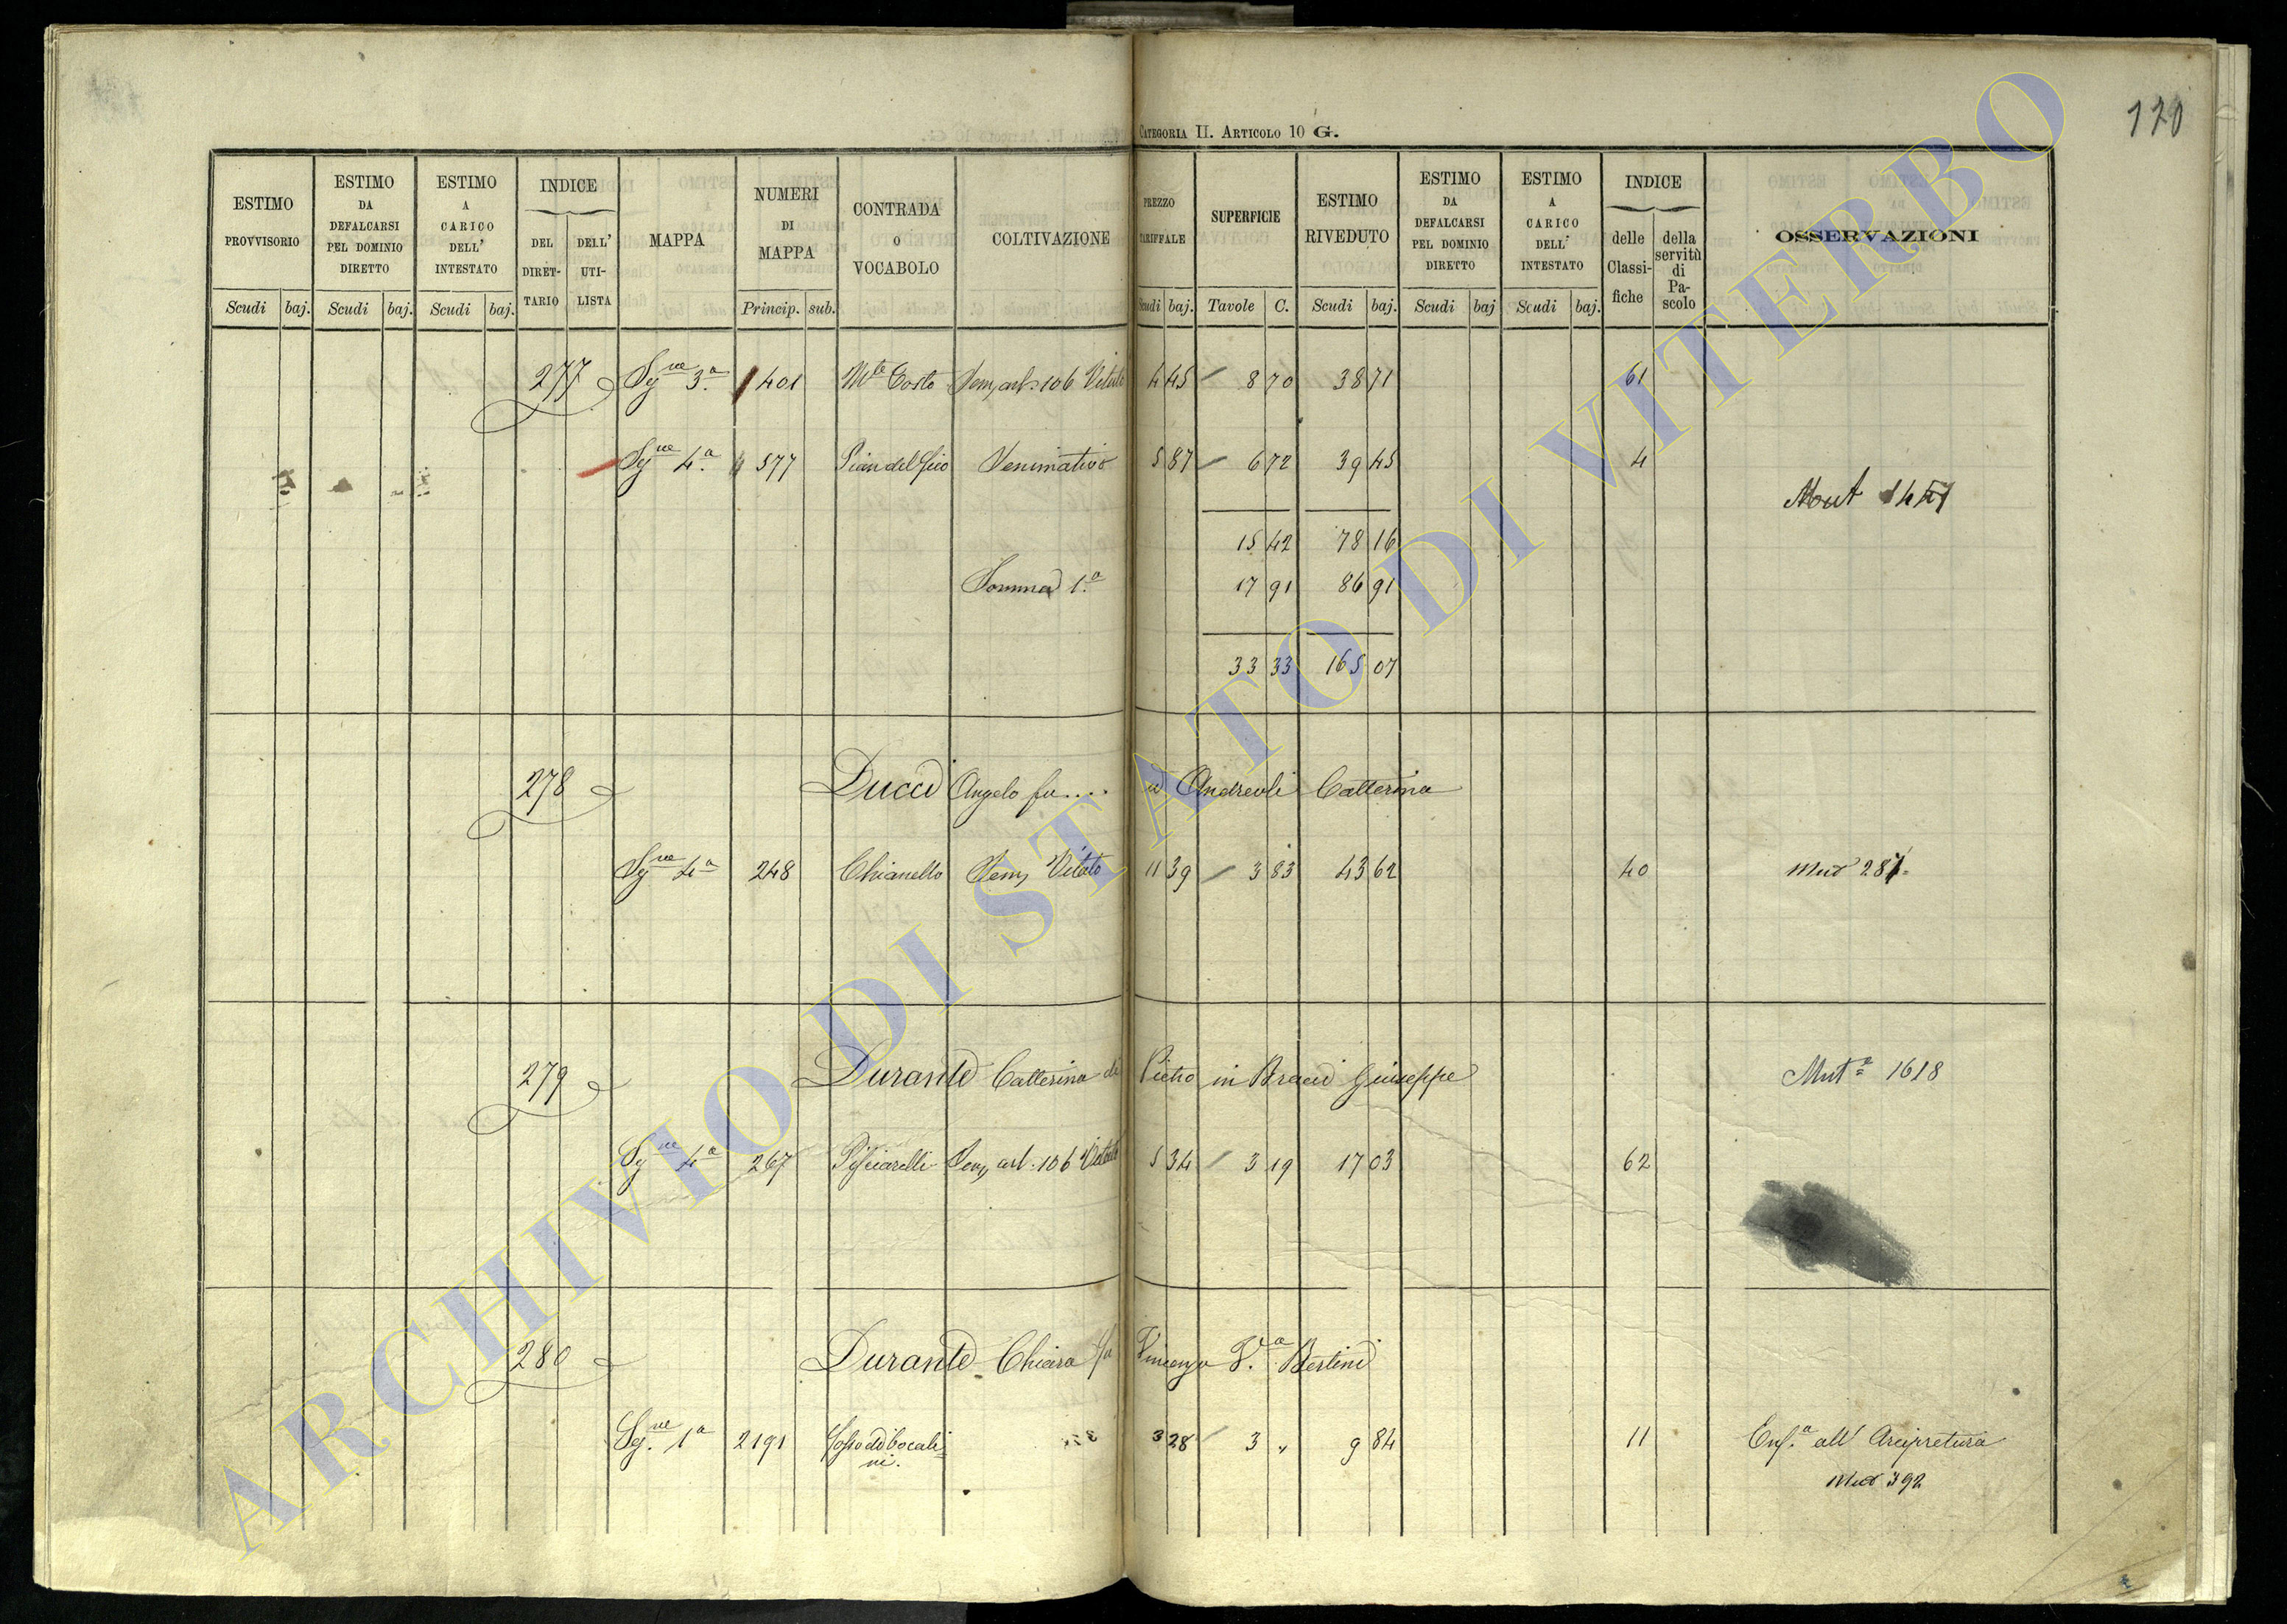 120
CATEGORIA II. ARTICOLO 10 G.
ESTIMO PROVVISORIO
ESTIMO DA DEFALCARSI PEL DOMINIO DIRETTO
ESTIMO A CARICO DELL' INTESTATO
INDICE
DEL DIRET-TARIO
DELL' UTI-LISTA
MAPPA
NUMERI DI MAPPA
CONTRADA O VOCABOLO
COLTIVAZIONE
PREZZO TARIFFALE
SUPERFICIE
ESTIMO RIVEDUTO
ESTIMO DA DEFALCARSI PEL DOMINIO DIRETTO
ESTIMO A CARICO DELL' INTESTATO
INDICE
delle Classi-fiche
della servitù di Pa-scolo
OSSERVAZIONI
Scudi baj. Scudi baj. Scudi baj. Princip. sub. Scudi baj. Tavole C. Scudi baj. Scudi baj Scudi baj.
277 Sg.ne 3.a 401 M.te Costo Sem, arb. 106 Vitato 4 45 8 70 38 71 61
Sg.ne 4.a 577 Seminativo 5 87 6 72 39 45 4
15 42 78 16
Somma 1.a 17 91 86 91
33 33 165 07
278 Ducci Angelo fu .... in Andreoli Catterina
Sg.ne 4.a 248 Chianello Sem, Vitato 11 39 3 83 43 62 40
279 Durante Catterina di Pietro in Bracci Giuseppe Mut.a 1618
Sg.ne 4.a 267 Pisciarelli Sem, arb. 106 Vitato 5 34 3 19 17 03 62
280 Durante Chiara fu Vincenzo V.a Bertini
Sg.ne 1.a 2191 3 28 3 " 9 84 11 Enf.a all' Arcipretura
Mut 392
ARCHIVIO DI STATO DI VITERBO